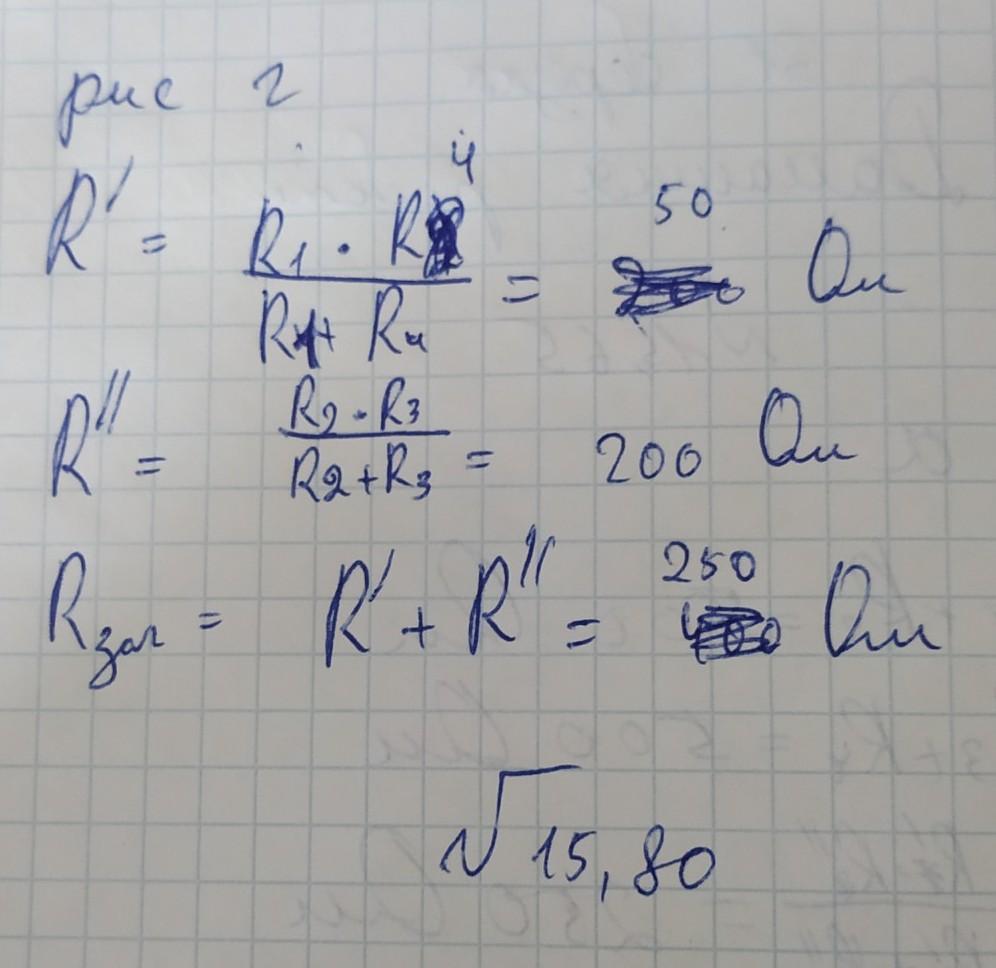 рис г
R' = R1 · R4 / R1 + R4 = 50 Ом
R'' = R2 · R3 / R2 + R3 = 200 Ом
Rзаг = R' + R'' = 250 Ом
√15,80